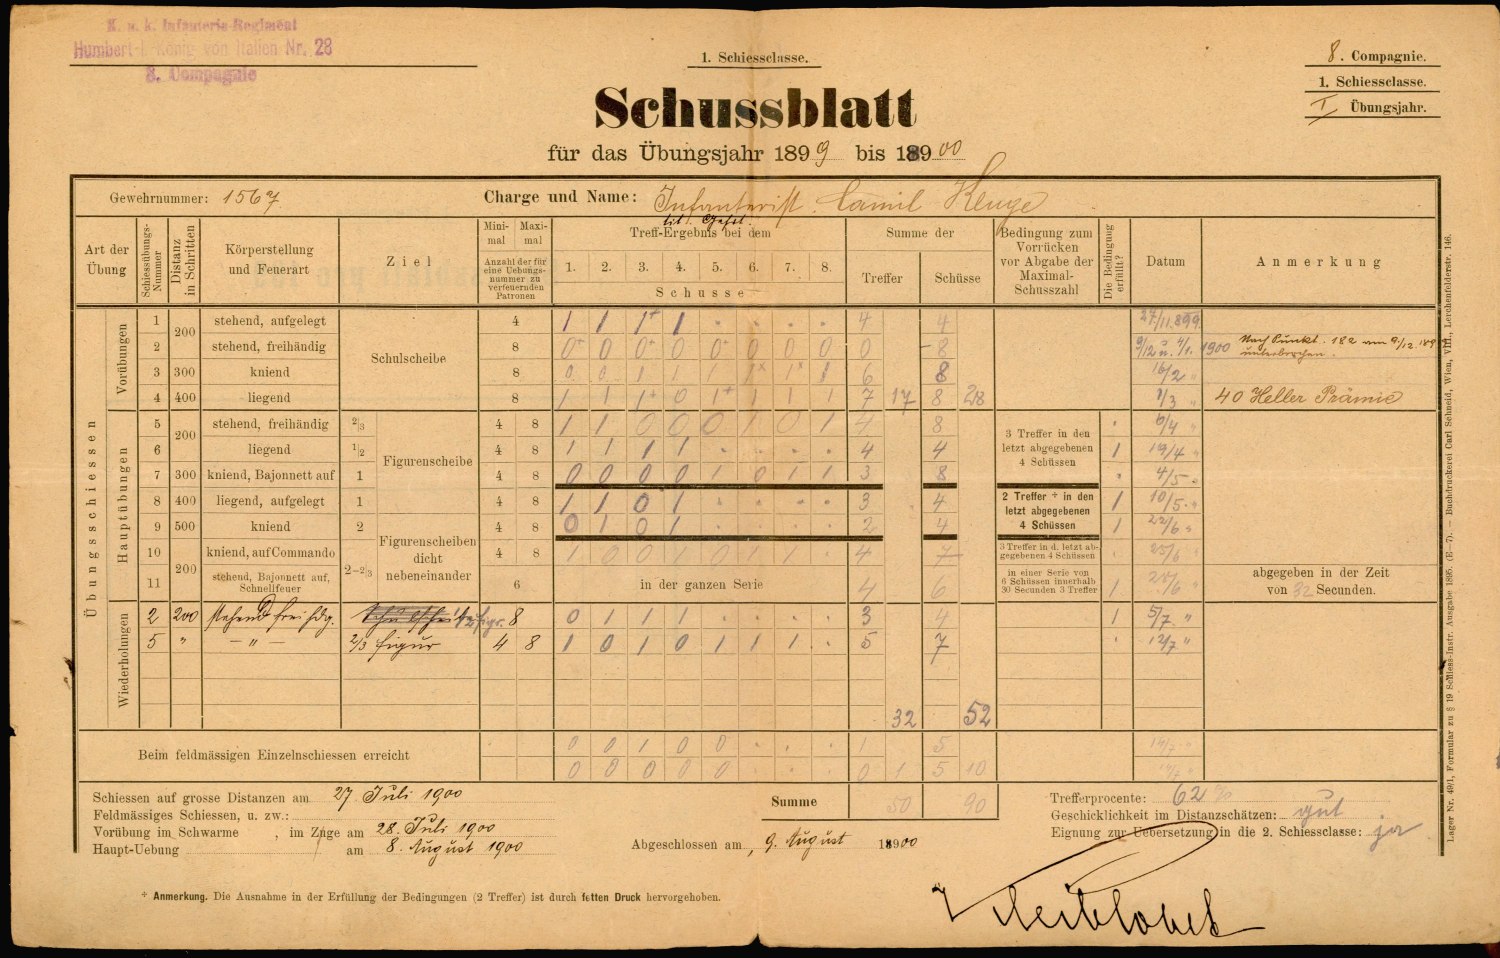 K. u. k. Infanterie-Regiment
Humbert I. König von Italien Nr. 28
8. Compagnie
1. Schiessclasse.
8. Compagnie.
1. Schiessclasse.
I Übungsjahr.
Schussblatt
für das Übungsjahr 1899 bis 1900
Gewehrnummer: 1567
Charge und Name: Infanterist Camil Kluge
tit. Gefrt.
Art der Übung
Schiessübungs-Nummer
Distanz in Schritten
Körperstellung und Feuerart
Ziel
Minimal Maximal
Anzahl der für eine Uebungsnummer zu verfeuernden Patronen
Treff-Ergebnis bei dem
1. 2. 3. 4. 5. 6. 7. 8.
Schusse
Summe der
Treffer Schüsse
Bedingung zum Vorrücken vor Abgabe der Maximal-Schusszahl
Die Bedingung erfüllt?
Datum
Anmerkung
Übungsschiessen
Vorübungen
1 200 stehend, aufgelegt Schulscheibe 4 1 1 1+ 1 . . . . 4 4 27/11.899.
2 stehend, freihändig 8 0+ 0 0+ 0 0+ 0 0 0 0 8 9/12 u. 4/1. 1900 Nach Punkt. 182 am 9/12
3 300 kniend 8 0 0 1 1 1 1x 1x 1 6 8 16/2 "
4 400 liegend 8 1 1 1+ 0 1+ 1 1 1 7 17 8 28 1/3 " 40 Heller Prämie
Hauptübungen
5 200 stehend, freihändig 2/3 Figurenscheibe 4 8 1 1 0 0 0 1 0 1 4 8 . 6/4 "
6 liegend 1/2 4 8 1 1 1 1 . . . . 4 4 1 19/4 "
7 300 kniend, Bajonnett auf 1 4 8 0 0 0 0 1 0 1 1 3 8 . 4/5 "
3 Treffer in den letzt abgegebenen 4 Schüssen
8 400 liegend, aufgelegt 1 4 8 1 1 0 1 . . . . 3 4 1 10/5 "
9 500 kniend 2 Figurenscheiben dicht nebeneinander 4 8 0 1 0 1 . . . . 2 4 1 22/6 "
2 Treffer + in den letzt abgegebenen 4 Schüssen
10 200 kniend, auf Commando 2-2/3 4 8 1 0 0 1 0 1 1 . 4 7 3 Treffer in d. letzt abgegebenen 4 Schüssen . 25/6 "
11 stehend, Bajonnett auf, Schnellfeuer 6 in der ganzen Serie 4 6 in einer Serie von 6 Schüssen innerhalb 30 Secunden 3 Treffer 1 abgegeben in der Zeit von 32 Secunden.
Wiederholungen
2 200 stehend freihdg. 1/2 figr. 8 0 1 1 1 . . . . 3 4 1 5/7 "
5 " — " — 2/3 figur 4 8 1 0 1 0 1 1 1 . 5 7 . 12/7 "
32 52
Beim feldmässigen Einzelnschiessen erreicht
0 0 1 0 0 . . . 1 5
0 0 0 0 0 . . . 0 1 5 10
Schiessen auf grosse Distanzen am 27 Juli 1900
Feldmässiges Schiessen, u. zw.:
Vorübung im Schwarme , im Zuge am 28. Juli 1900
Haupt-Uebung am 8. August 1900
Summe 50 90
Abgeschlossen am, 9. August 1900
Trefferprocente: 62 %
Geschicklichkeit im Distanzschätzen: gut
Eignung zur Uebersetzung in die 2. Schiessclasse: ja
+ Anmerkung. Die Ausnahme in der Erfüllung der Bedingungen (2 Treffer) ist durch fetten Druck hervorgehoben.
Lager Nr. 49/1, Formular zu § 19 Schiess-Instr. Ausgabe 1895. (E—7). — Buchdruckerei Carl Schneid, Wien, VIII., Lerchenfelderstr. 146.